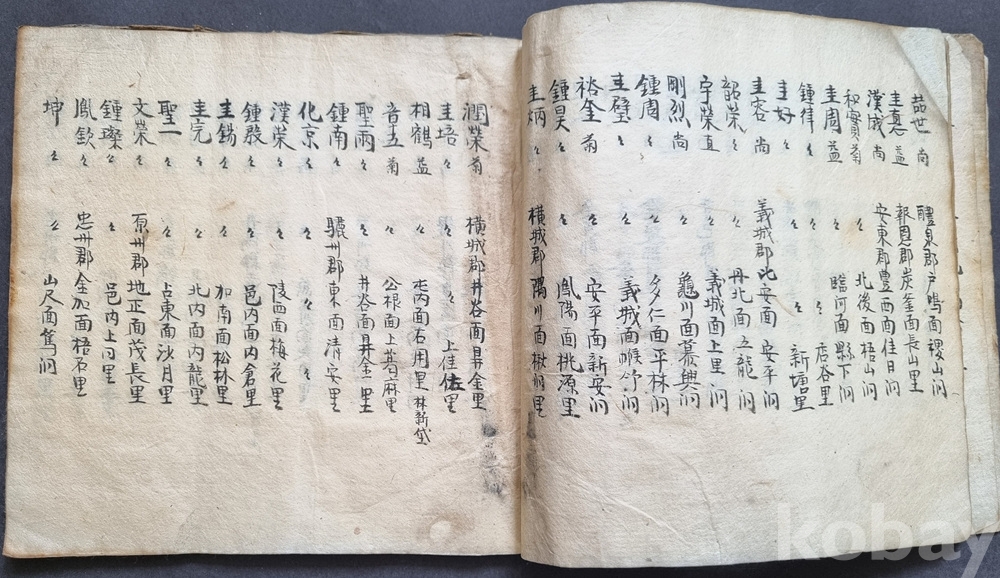 喆世 尚 醴泉郡戶鳴面稷山洞
圭憙 益 報恩郡炭釜面長山里
漢成 尚 安東郡豊西面佳日洞
和實 菊 〻 北後面梧山洞
圭周 益 〻 臨河面縣下洞
鍾律 〻 〻 店谷里
圭好 〻 〻 新塘里
圭容 尚 義城郡比安面 安平洞
韶榮 〻 〻 丹北面 龍洞
宇榮 直 〻 義城面上里洞
剛烈 尚 〻 龜川面慕興洞
鍾周 〻 〻 多仁面平林洞
圭璧 〻 〻 義城面喉竹洞
裕奎 菊 〻 安平面新安洞
鍾昊 〻 〻 鳳陽面桃源里
圭炳 〻 橫城郡隅川面楸洞里
潤榮 菊 橫城郡井谷面昇金里
圭培 〻 〻 上佳佐里
相鶴 益 〻 屯内面石用里 林新岱
音五 菊 〻 公根面上蒼麻里
聖雨 〻 〻 井谷面昇金里
鍾南 〻 驪州郡東面清安里
化京 〻 〻 〻
漢榮 〻 〻 陵西面梅花里
鍾殷 〻 〻 邑内面内倉里
圭錫 〻 〻 加南面松林里
圭完 〻 〻 北内面内龍里
聖一 〻 〻 占東面沙月里
文榮 〻 原州郡地正面茂長里
鍾燦 〻 〻 邑内上同里
鳳欽 〻 忠州郡金加面梧石里
坤 〻 〻 山尺面篤洞
kobay